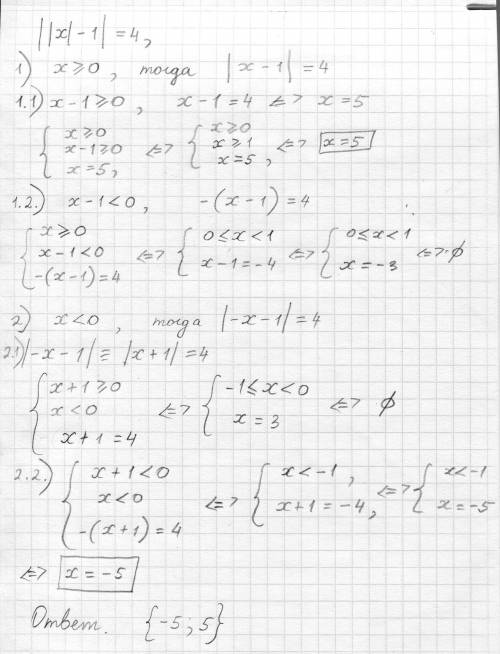 ||x| - 1| = 4,
1) x ⩾ 0, тогда |x - 1| = 4
1.1) x - 1 ⩾ 0, x - 1 = 4 <=> x = 5
{ x ⩾ 0 <=> { x ⩾ 0 <=> x = 5
x - 1 ⩾ 0 x ⩾ 1
x = 5, x = 5,
1.2.) x - 1 < 0, -(x - 1) = 4
{ x ⩾ 0 <=> { 0 ⩽ x < 1 <=> { 0 ⩽ x < 1 <=> ∅
x - 1 < 0 x - 1 = -4 x = -3
-(x - 1) = 4
2) x < 0, тогда |-x - 1| = 4
2.1) |-x - 1| ≡ |x + 1| = 4
{ x + 1 ⩾ 0 <=> { -1 ⩽ x < 0 <=> ∅
x < 0 x = 3
x + 1 = 4
2.2.) { x + 1 < 0 <=> { x < -1, <=> { x < -1
x < 0 x + 1 = -4, x = -5
-(x + 1) = 4
<=> x = -5
Ответ. {-5; 5}